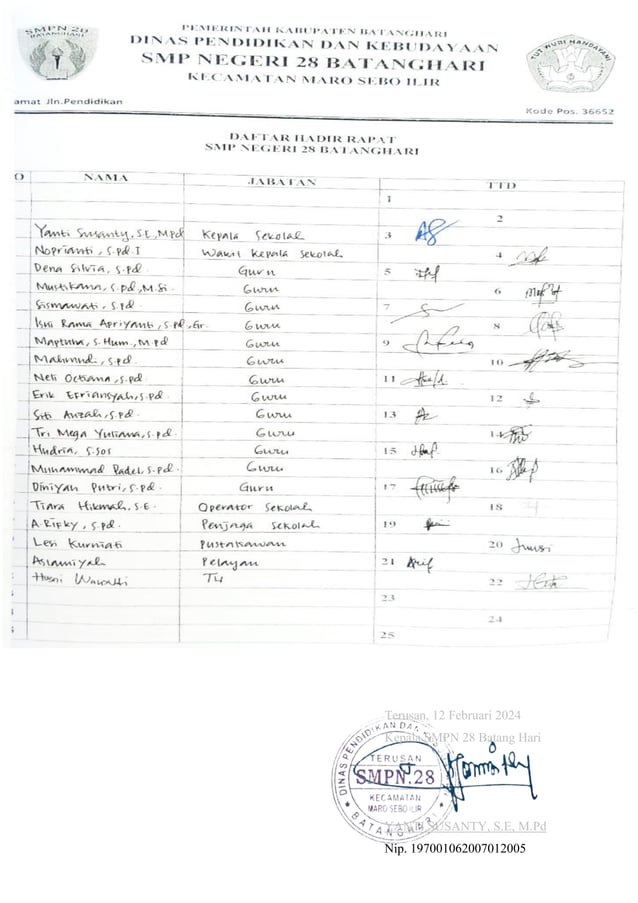 SMPN 28
BATANGHARI
PEMERINTAH KABUPATEN BATANGHARI
DINAS PENDIDIKAN DAN KEBUDAYAAN
SMP NEGERI 28 BATANGHARI
KECAMATAN MARO SEBO ILIR
TUT WURI HANDAYANI
amat Jln.Pendidikan
Kode Pos. 36652
DAFTAR HADIR RAPAT
SMP NEGERI 28 BATANGHARI
O NAMA JABATAN TTD
1
2
Yanti Susanty, S.E, M.Pd Kepala Sekolah 3
Noprianti, S.Pd.I Wakil Kepala Sekolah 4
Dena Silvia, S.Pd. Guru 5
Mustikana, S.Pd, M.Si. Guru 6
Sismawati, S.Pd. Guru 7
Isni Rama Apriyanti, S.Pd, Gr. Guru 8
Maptuha, S.Hum, M.Pd Guru 9
Mahmud, S.Pd. Guru 10
Neti Octiana, S.Pd. Guru 11
Erik Efriansyah, S.Pd. Guru 12
Siti Anzah, S.Pd. Guru 13
Tri Mega Yuliana, S.Pd. Guru 14
Hudria, S.Sos Guru 15
Muhammad Padel, S.Pd. Guru 16
Diniyah Putri, S.Pd. Guru 17
Tiara Hikmah, S.E. Operator Sekolah 18
A. Rifky, S.Pd. Penjaga Sekolah 19
Lesi Kurniati Pustakawan 20
Aslamiyah Pelayan 21
Husni TU 22
23
24
25
Terusan, 12 Februari 2024
Kepala SMPN 28 Batang Hari
DINAS PENDIDIKAN DAN
TERUSAN
SMPN.28
KECAMATAN
MARO SEBO ILIR
BATANGHARI
YANTI SUSANTY, S.E, M.Pd
Nip. 197001062007012005